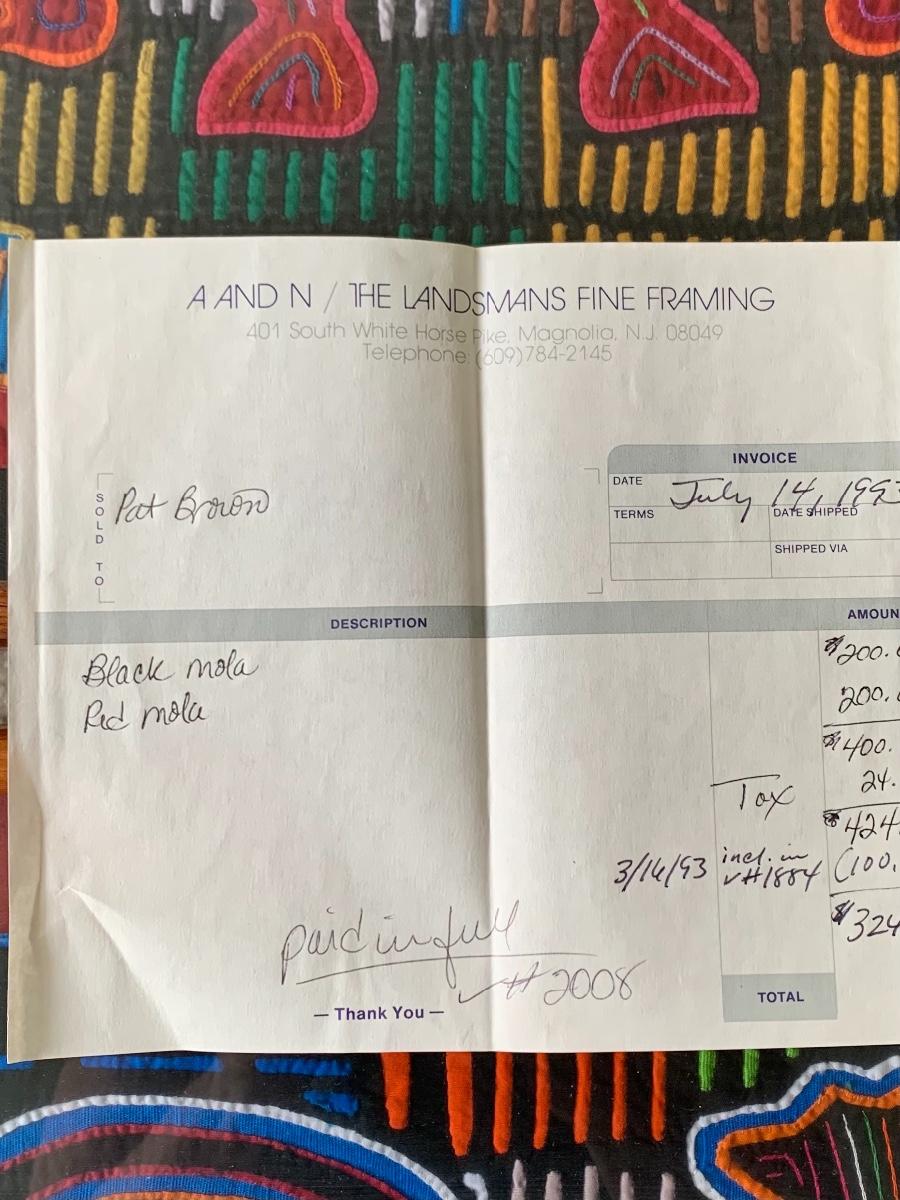 A AND N / THE LANDSMANS FINE FRAMING
401 South White Horse Pike, Magnolia, N.J. 08049
Telephone: (609)784-2145
INVOICE
SOLD TO
Pat Brown
DATE July 14, 1993
TERMS
DATE SHIPPED
SHIPPED VIA
DESCRIPTION
AMOUN
Black mola $200.
Red mola 200.
$400.
Tax 24.
$424
3/16/93 incl. in (100.
✓#1884
$324
paid in full
✓#2008
— Thank You —
TOTAL